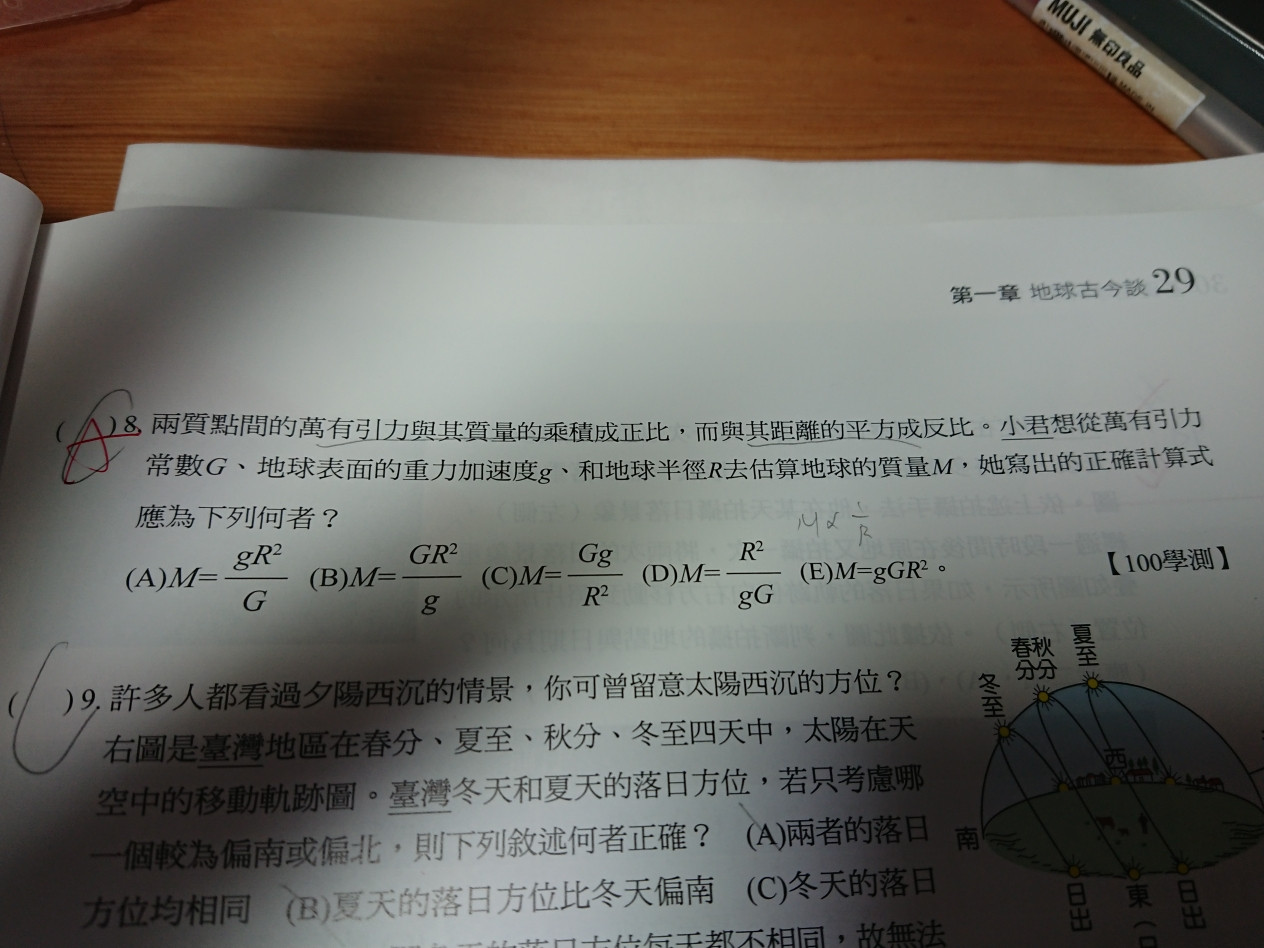 MUJI 無印良品
第一章 地球古今談 29
( A )8. 兩質點間的萬有引力與其質量的乘積成正比，而與其距離的平方成反比。小君想從萬有引力
常數G、地球表面的重力加速度g、和地球半徑R去估算地球的質量M，她寫出的正確計算式
應為下列何者？
M∝1/R
(A)M=gR²/G (B)M=GR²/g (C)M=Gg/R² (D)M=R²/gG (E)M=gGR²。 【100學測】
( C )9. 許多人都看過夕陽西沉的情景，你可曾留意太陽西沉的方位？
右圖是臺灣地區在春分、夏至、秋分、冬至四天中，太陽在天
空中的移動軌跡圖。臺灣冬天和夏天的落日方位，若只考慮哪
一個較為偏南或偏北，則下列敘述何者正確？ (A)兩者的落日
方位均相同 (B)夏天的落日方位比冬天偏南 (C)冬天的落日
的落日方位每天都不相同，故無法
夏至
春分 秋分
冬至
西
南
日出
東
日出